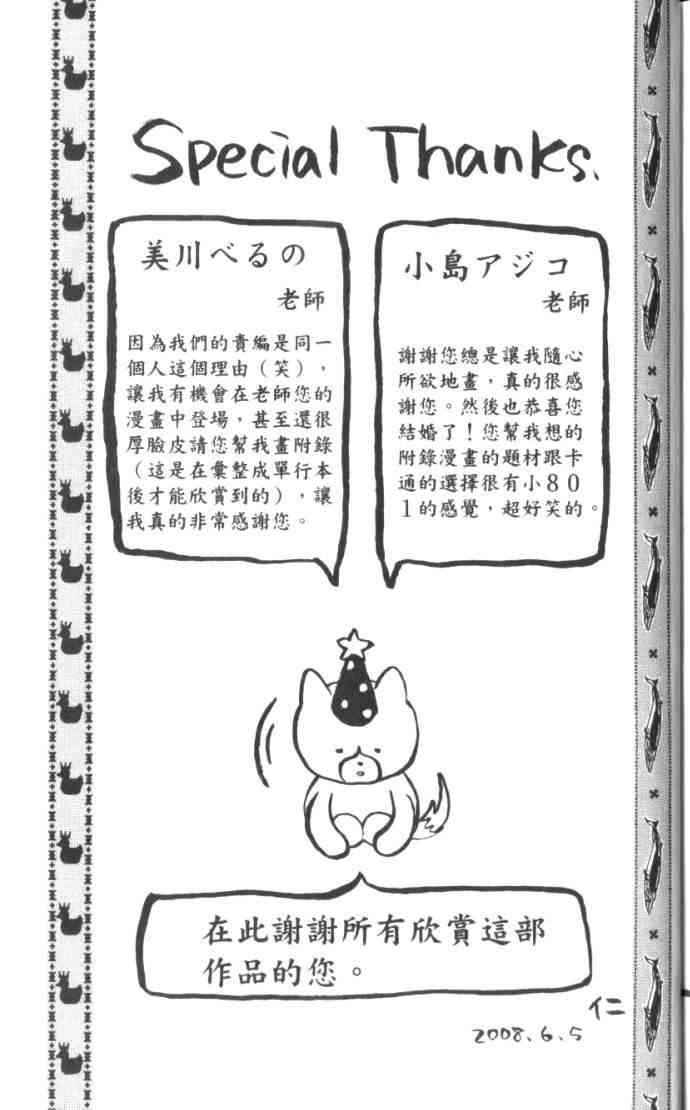 Special Thanks.
美川べるの
老師
因為我們的責編是同一
個人這個理由（笑），
讓我有機會在老師您的
漫畫中登場，甚至還很
厚臉皮請您幫我畫附錄
（這是在彙整成單行本
後才能欣賞到的），讓
我真的非常感謝您。
小島アジコ
老師
謝謝您總是讓我隨心
所欲地畫，真的很感
謝您。然後也恭喜您
結婚了！您幫我想的
附錄漫畫的題材跟卡
通的選擇很有小８０
１的感覺，超好笑的。
在此謝謝所有欣賞這部
作品的您。
仁
2008.6.5